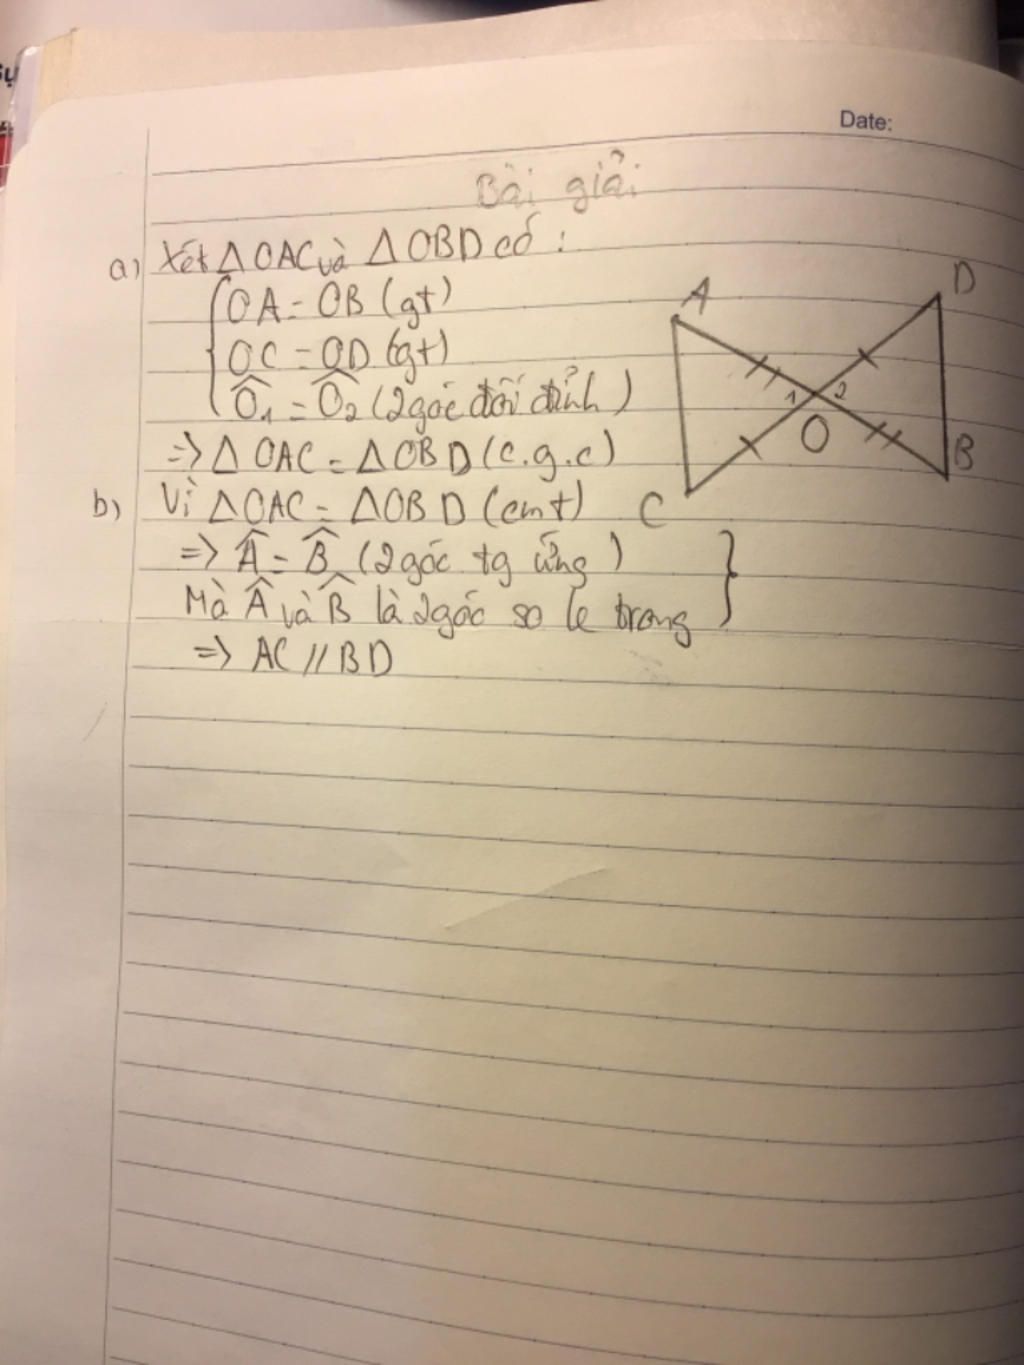 Sự
Date:
Bài giải
a) Xét △OAC và △OBD có :
OA = OB (gt)
OC = OD (gt)
Ô1 = Ô2 (2 góc đối đỉnh)
=> △OAC = △OBD (c.g.c)
b) Vì △OAC = △OBD (cmt)
=> Â = B̂ (2 góc tg ứng)
Mà Â và B̂ là 2 góc so le trong
=> AC // BD
A
D
1
2
O
B
C